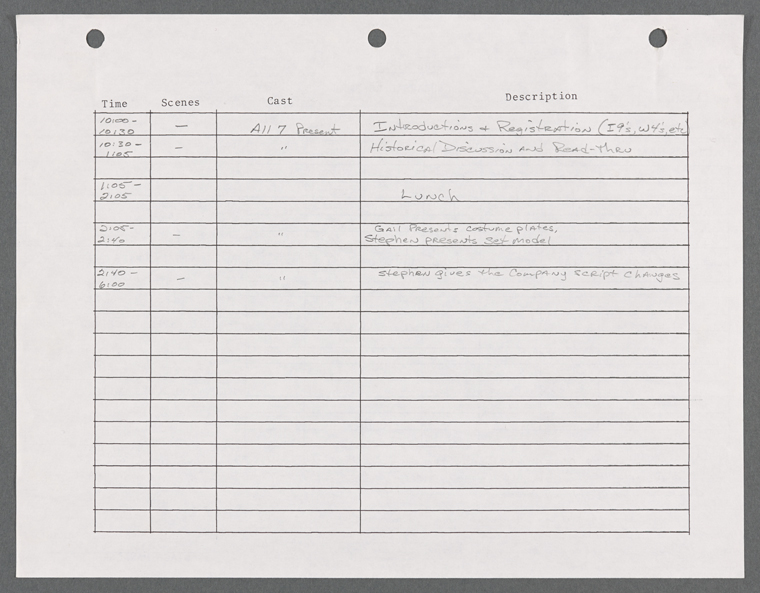 Time Scenes Cast Description
10:00-
10:30 — All 7 Present Introductions + Registration (I9's, W4's, etc)
10:30-
1:05 — " Historical Discussion and Read-Thru
1:05-
2:05 Lunch
2:05- Gail Presents costume plates,
2:40 — " Stephen presents set model
2:40- Stephen gives the Company script changes
6:00 — "